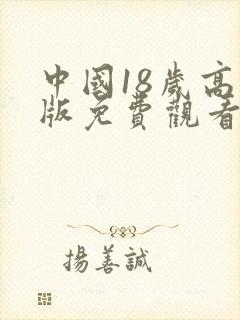 中國18歲高
版免費觀看
揚善誠